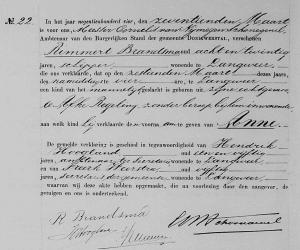 No. 22.
In het jaar negentienhonderd vier, den zeventienden Maart
is voor ons, Meester Cornelis van
Ambtenaar van den Burgerlijken Stand der gemeente Doniawerstal, verschenen
Remmert Brandsma acht en twintig
jaren, schipper, wonende te Langweer
die ons verklaarde, dat op den zestienden Maart dezes jaars,
des namiddags te vier ure, te Langweer
een kind van het mannelijk geslacht is geboren uit zijne echtgenoote
Sijke Regeling, zonder beroep bij hem inwonende
aan welk kind hij verklaarde den voornaam te geven van Anne.
De gemelde verklaring is geschied in tegenwoordigheid van Hendrik
Hoogland
jaren, ambtenaar ter Secretarie, wonende te Langweer
en
jaren, wonende te Langweer
waarvan wij deze akte hebben opgemaakt, die na voorlezing door den aangever, de
getuigen en ons is onderteekend.
R Brandsma